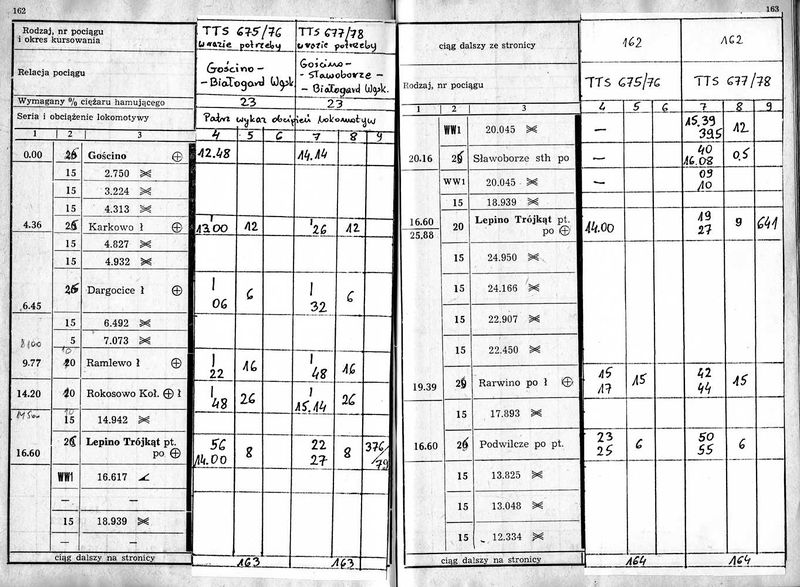 162
Rodzaj, nr pociągu
i okres kursowania
TTS 675/76
w razie potrzeby
TTS 677/78
w razie potrzeby
Relacja pociągu
Gościno -
- Białogard Wąsk.
Gościno -
- Sławoborze -
- Białogard Wąsk.
Wymagany % ciężaru hamującego
23
23
Seria i obciążenie lokomotywy
Patrz wykaz obciążeń lokomotyw
1 2 3 4 5 6 7 8 9
0.00 Gościno 12.48 14.14
15 2.750
15 3.224
15 4.313
4.36 Karkowo ł 13 00 12 26 12
15 4.827
15 4.932
6.45 Dargocice ł 06 6 32 6
15 6.492
5 7.073
10
9.77 Ramlewo ł 22 16 48 16
14.20 Rokosowo Koł. ł 48 26 15.14 26
10
15 14.942
16.60 Lepino Trójkąt pt. 56 22 376
po 14.00 8 27 8 /79
WW1 16.617
— —
15 18.939
— —
ciąg dalszy na stronicy 163 163
163
ciąg dalszy ze stronicy 162 162
Rodzaj, nr pociągu TTS 675/76 TTS 677/78
1 2 3 4 5 6 7 8 9
WW1 20.045 — 15.39
395 12
20.16 Sławoborze sth po — 40
16.08 0,5
WW1 20.045 — 09
10
15 18.939
16.60 20 Lepino Trójkąt pt. 14.00 19 9 641
25.88 po 27
15 24.950
15 24.166
15 22.907
15 22.450
19.39 Rarwino po ł 15 15 42 15
17 44
15 17.893
16.60 Podwilcze po pt. 23 6 50 6
25 55
15 13.825
15 13.048
15 12.334
ciąg dalszy na stronicy 164 164